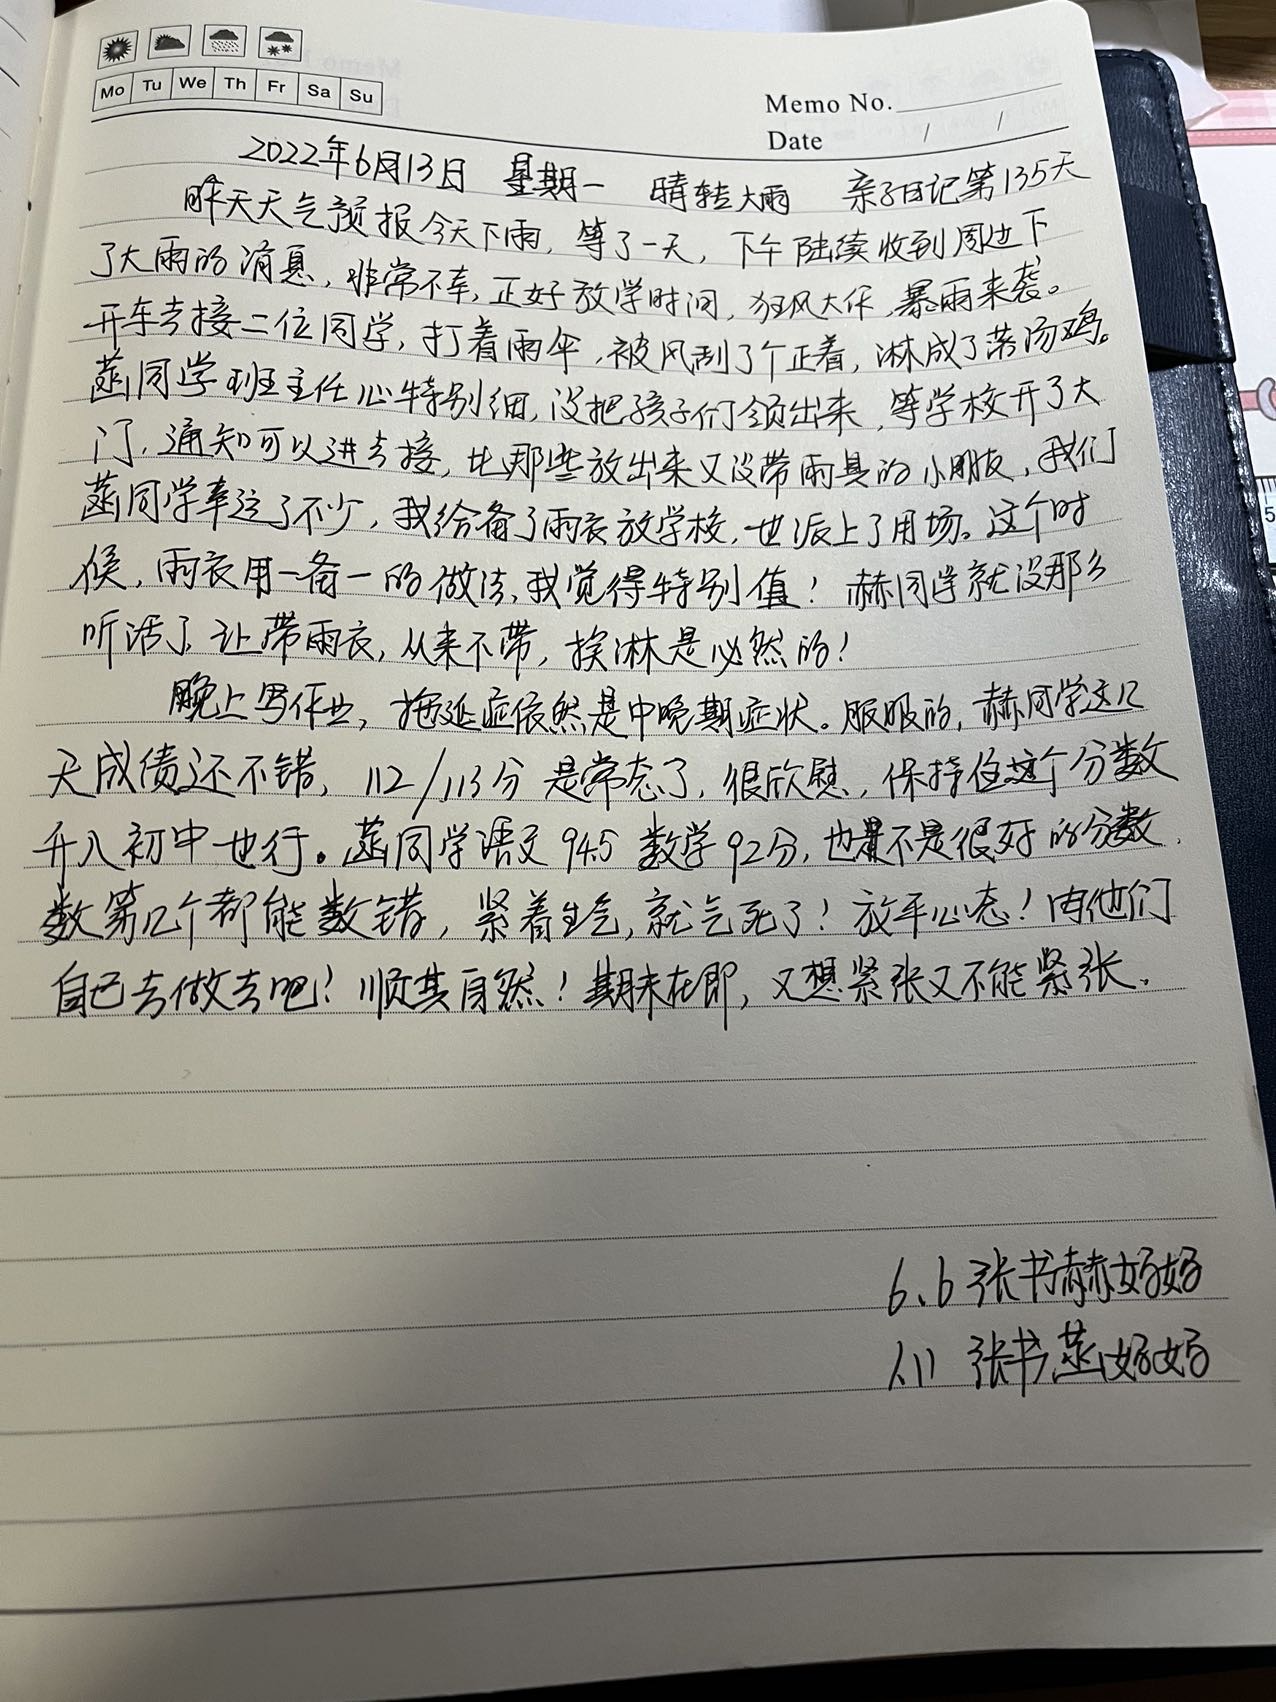 Mo Tu We Th Fr Sa Su
Memo No.
Date / /
2022年6月13日 星期一 晴转大雨 亲子日记第135天
昨天天气预报今天下雨，等了一天，下午陆续收到周边下
了大雨的消息，非常不幸，正好放学时间，狂风大作，暴雨来袭。
开车去接二位同学，打着雨伞，被风刮了个正着，淋成了落汤鸡。
菡同学班主任心特别细，没把孩子们领出来，等学校开了大
门，通知可以进去接，比那些放出来又没带雨具的小朋友，我们
菡同学幸运了不少，我给备了雨衣放学校，也派上了用场。这个时
候，雨衣用一备一的做法，我觉得特别值！赫同学就没那么
听话了，让带雨衣，从来不带，挨淋是必然的！
晚上写作业，拖延症依然是中晚期症状。服服的，赫同学这几
天成绩还不错，112/113分是常态了，很欣慰，保持住这个分数
升入初中也行。菡同学语文94.5 数学92分，也不是很好的分数，
数第几个都能数错，紧着生气，就气死了！放平心态！由他们
自己去做去吧！顺其自然！期末在即，又想紧张又不能紧张。
6.6 张书赫妈妈
1.11 张书菡妈妈